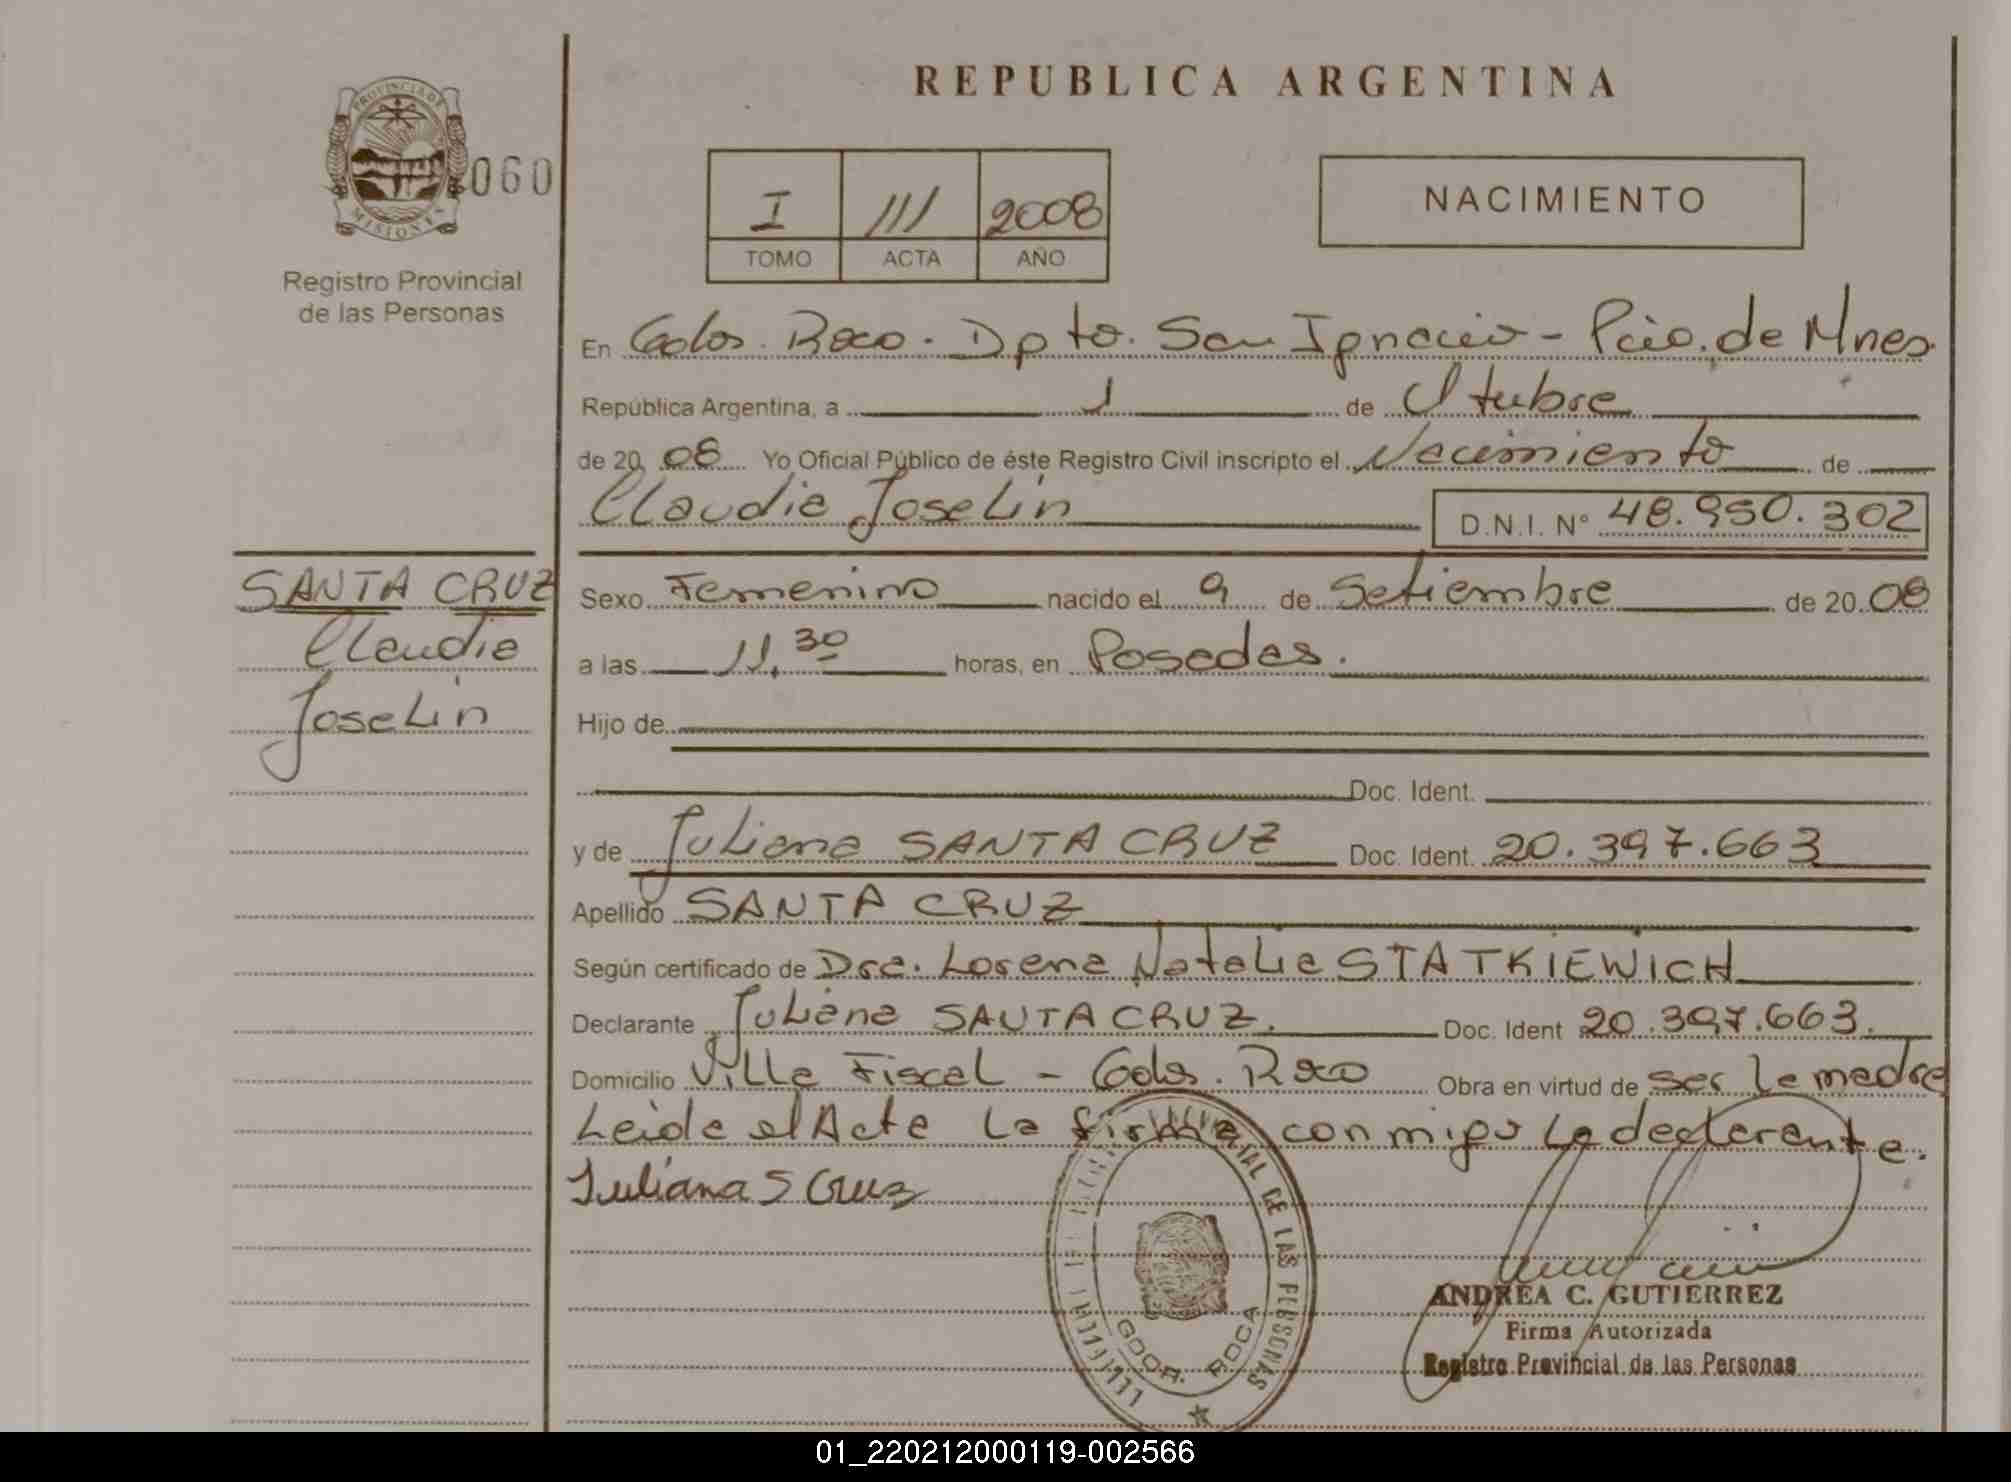 REPUBLICA ARGENTINA
PROVINCIA DE
MISIONES
060
Registro Provincial
de las Personas
I 111 2008
TOMO ACTA AÑO
NACIMIENTO
En Gdor. Roca. Dpto. San Ignacio - Pcia. de Mnes.
República Argentina, a 1 de Octubre
de 20 08 Yo Oficial Público de éste Registro Civil inscripto el Nacimiento de
Claudia Joselin D.N.I. Nº 48.950.302
SANTA CRUZ
Claudia
Joselin
Sexo Femenino nacido el 9 de Setiembre de 20 08
a las 11.30 horas, en Posadas.
Hijo de
Doc. Ident.
y de Juliana SANTA CRUZ Doc. Ident. 20.397.663
Apellido SANTA CRUZ
Según certificado de Dra. Lorena Natalia STATKIEWICH
Declarante Juliana SANTA CRUZ. Doc. Ident 20.397.663.
Domicilio Villa Fiscal - Gdor. Roca Obra en virtud de ser la madre
Leida el Acta la firma conmigo la declarante.
Juliana S Cruz
DE LAS PERSONAS
GDOR. ROCA
ANDREA C. GUTIERREZ
Firma Autorizada
Registro Provincial de las Personas
01_220212000119-002566